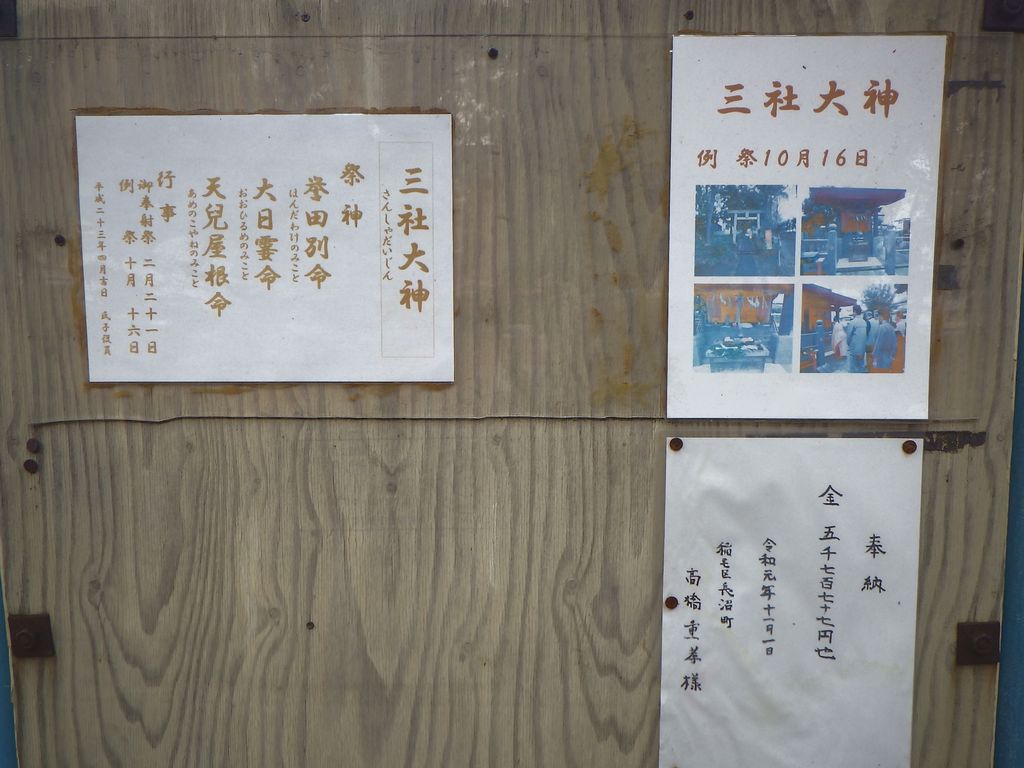 三社大神
さんしゃだいじん
祭神
誉田別命
ほんだわけのみこと
大日霊命
おおひるめのみこと
天兒屋根命
あめのこやねのみこと
行事
御奉射祭 二月二十一日
例祭 十月 十六日
平成二十三年四月吉日 氏子役員
三社大神
例 祭10月16日
奉納
金 五千七百七十七円也
令和元年十一月一日
稲毛区長沼町
高橋重孝様